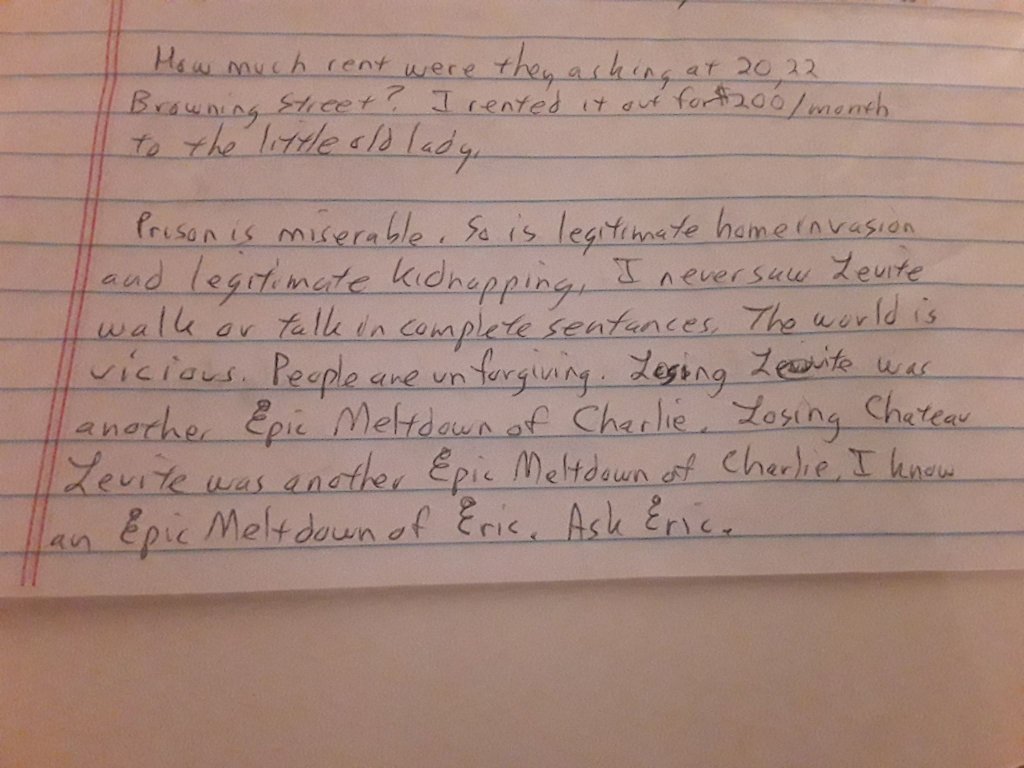 How much rent were they asking at 20,22
Browning Street? I rented it out for $200/month
to the little old lady.
Prison is miserable. So is legitimate home invasion
and legitimate kidnapping. I never saw Levite
walk or talk in complete sentances. The world is
vicious. People are unforgiving. Losing Levite was
another Epic Meltdown of Charlie. Losing Chateau
Levite was another Epic Meltdown of Charlie. I know
an Epic Meltdown of Eric. Ask Eric.